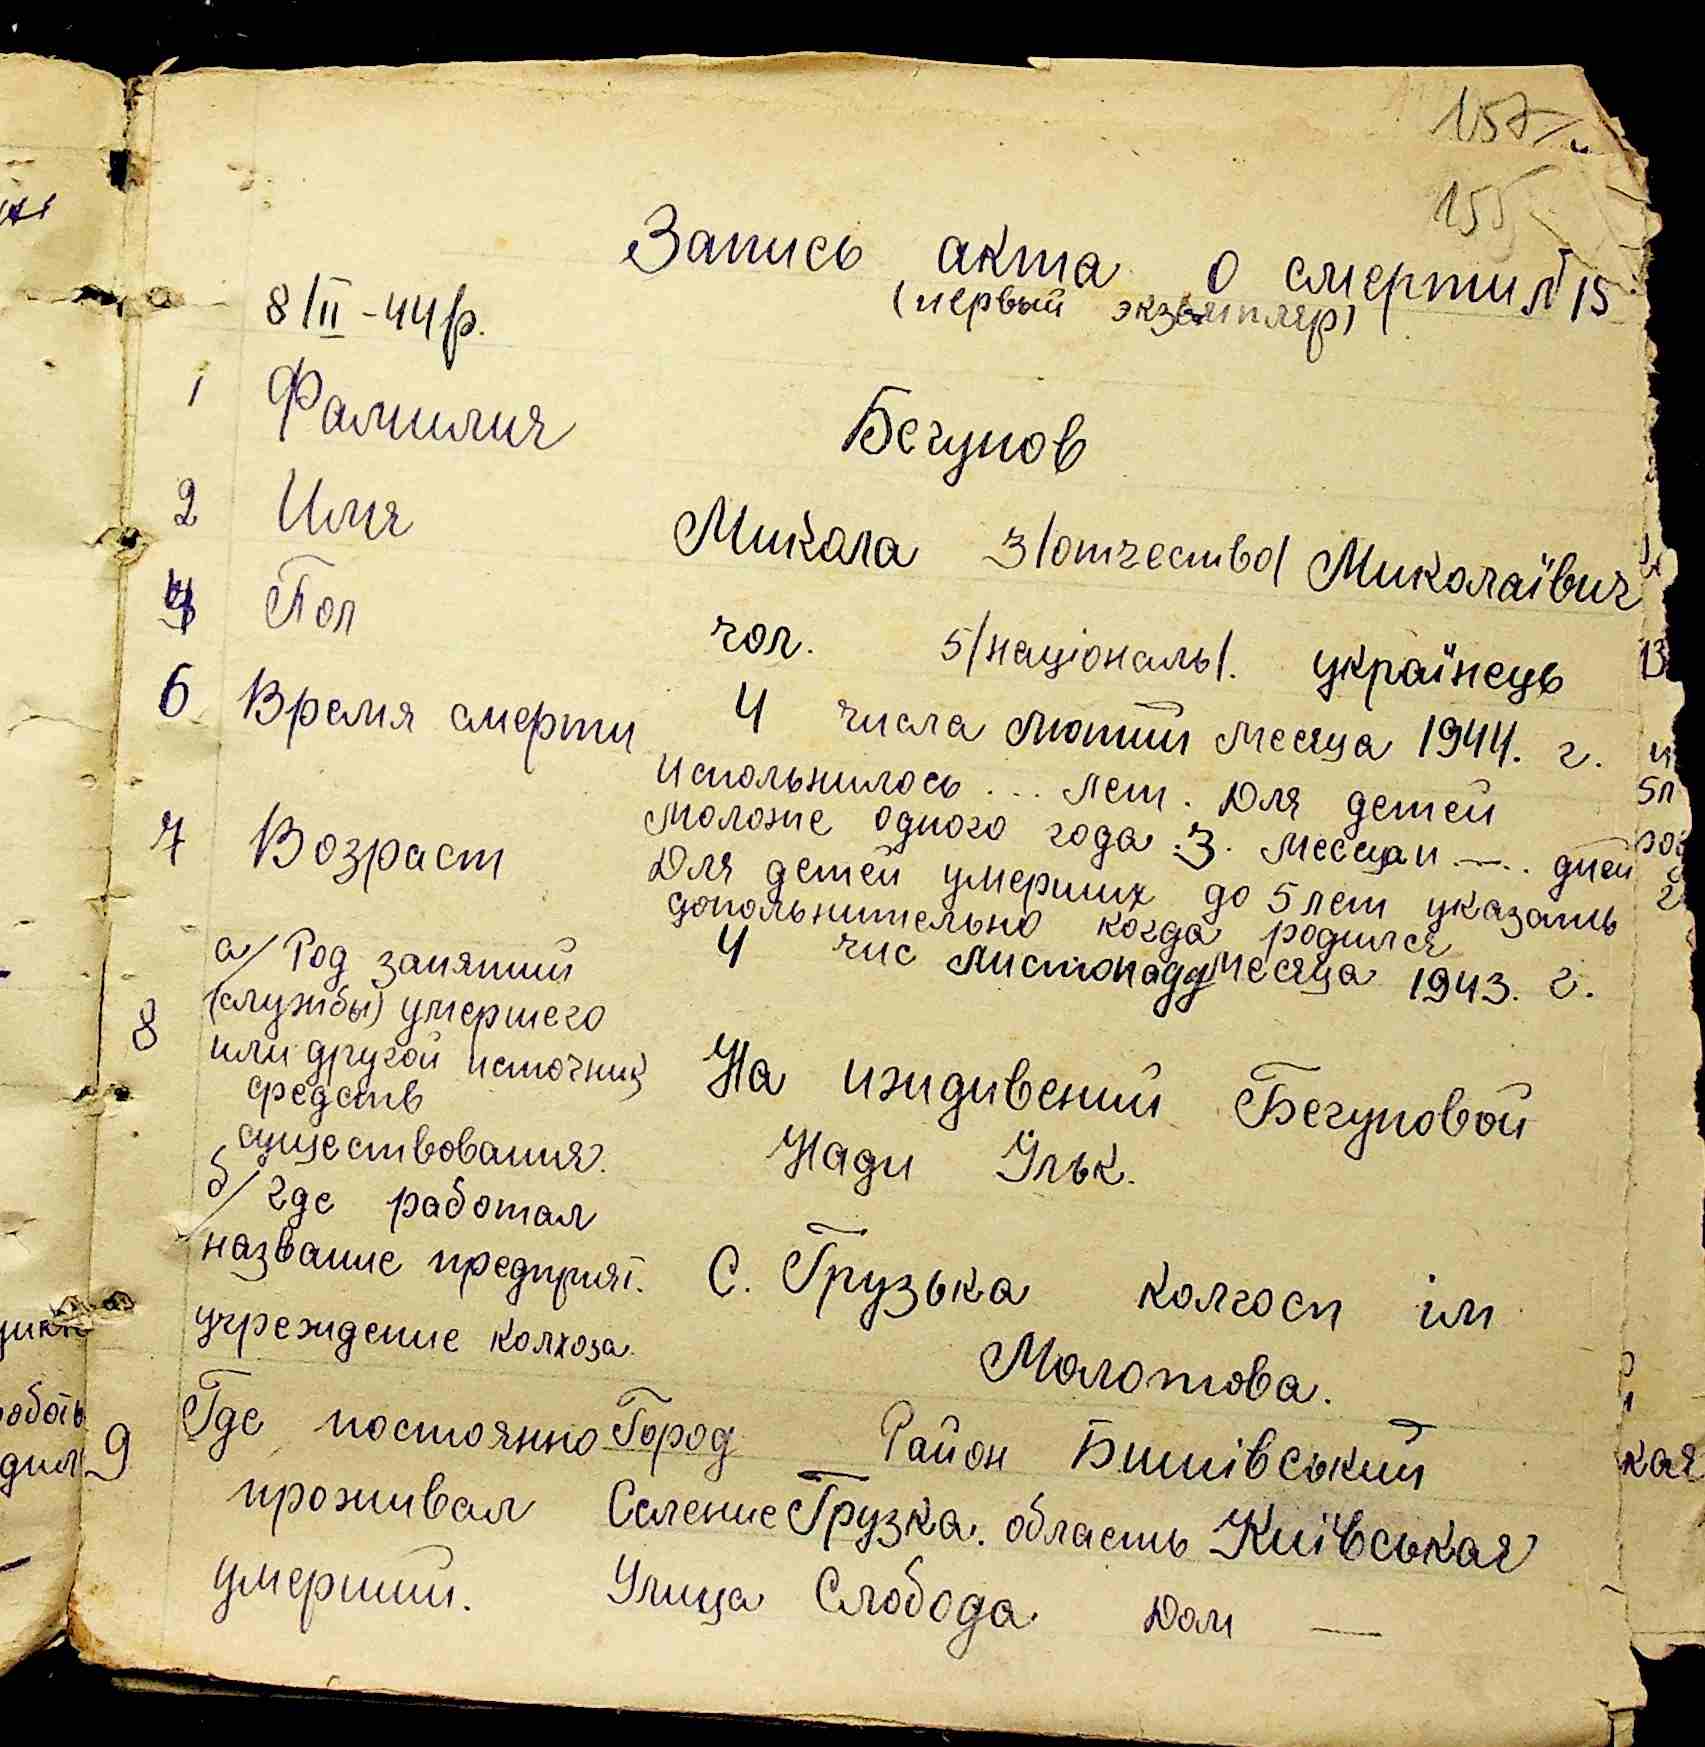 157
155
Запись акта о смерти № 15
(первый экземпляр)
8/II - 44 р.
1 Фамилия Бегунов
2 Имя Микола 3/отчество/ Миколаївич
4 Пол чол. 5/національ/. українець
6 Время смерти 4 числа лютий месяца 1944. г.
7 Возраст испольнилось ... лет. Для детей
моложе одного года .3. месяцаи —. дней
Для детей умерших до 5 лет указать
допольнительно когда родился
4 чис листопад месяца 1943. г.
8 а/ Род занятий
(службы) умершего
или другой источник
средств
существования.
На иждивений Бегуновой
Нади Ульк.
б/ где работал
название предприят.
учреждение колхоза.
С. Грузька колгосп ім
Молотова.
9 Где постоянно Город Район Бишівський
проживал Селение Грузка. область Київськая
умерший. Улица Слобода Дом —